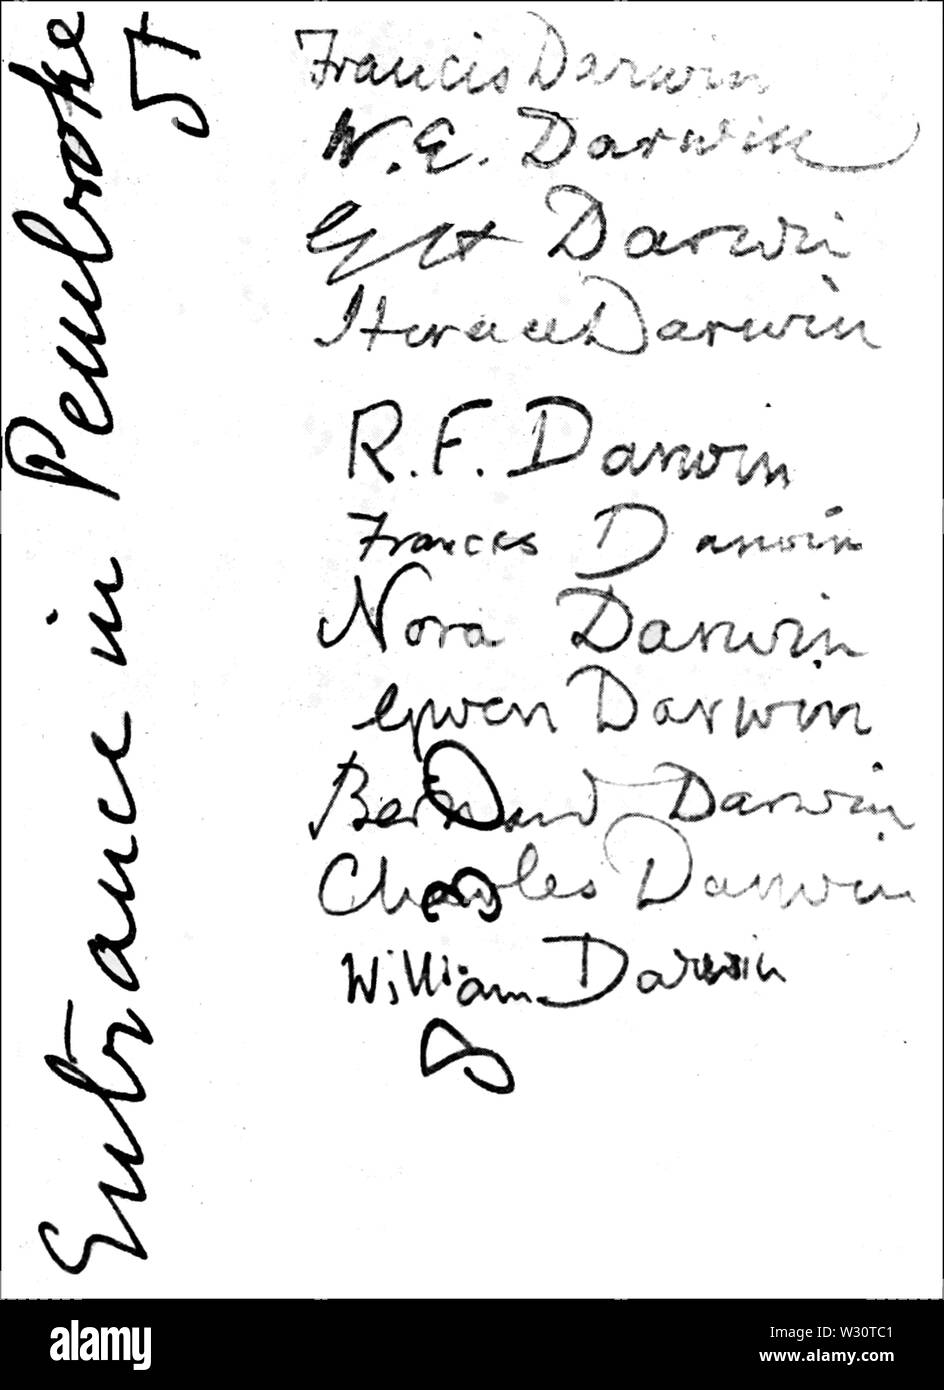 Entrance in Pembroke St
Francis Darwin
W. E. Darwin
Darwin
Horace Darwin
R. F. Darwin
Frances Darwin
Nora Darwin
Gwen Darwin
Bernard Darwin
Charles Darwin
William Darwin
a
alamy
Image ID: W30TC1
www.alamy.com